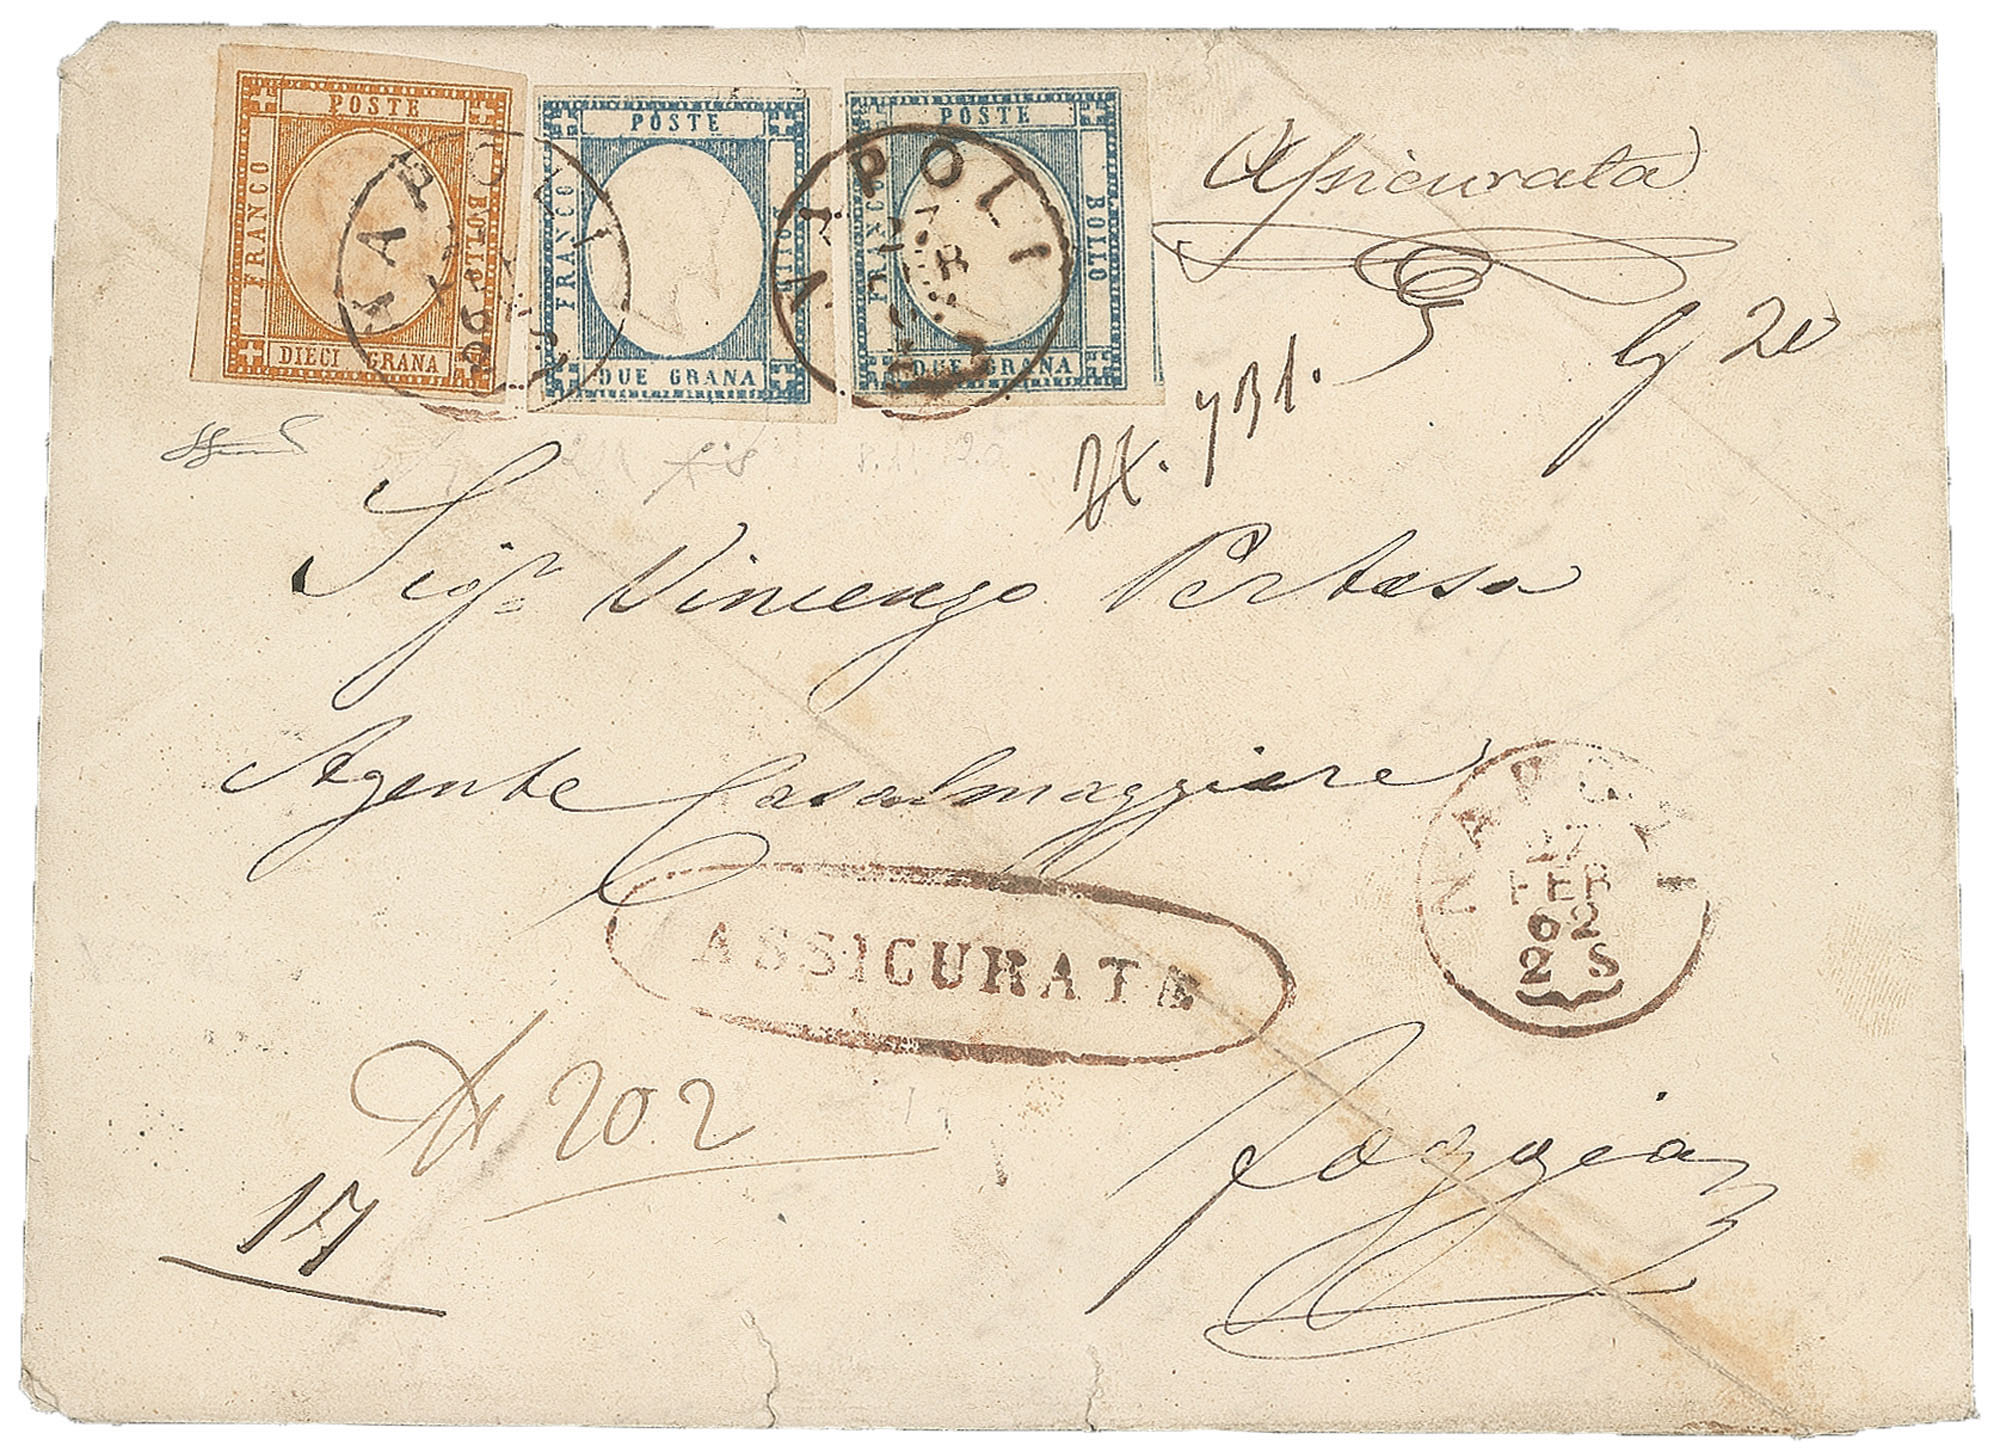 POSTE
FRANCO
BOLLO
DIECI GRANA
POSTE
FRANCO
DUE GRANA
POSTE
FRANCO
BOLLO
DUE GRANA
NAPOLI
NAPOLI
Assicurata
731.
20
Sigr Vincenzo Pertosa
Agente Casalmaggiore
NAPOLI
27
FEB
62
2 S
ASSICURATA
N 202
17
Foggia